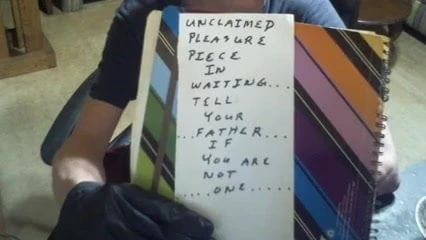 UNCLAIMED
PLEASURE
PIECE
IN
WAITING...
TELL
YOUR
...FATHER...
IF
YOU ARE
NOT
.....ONE.....